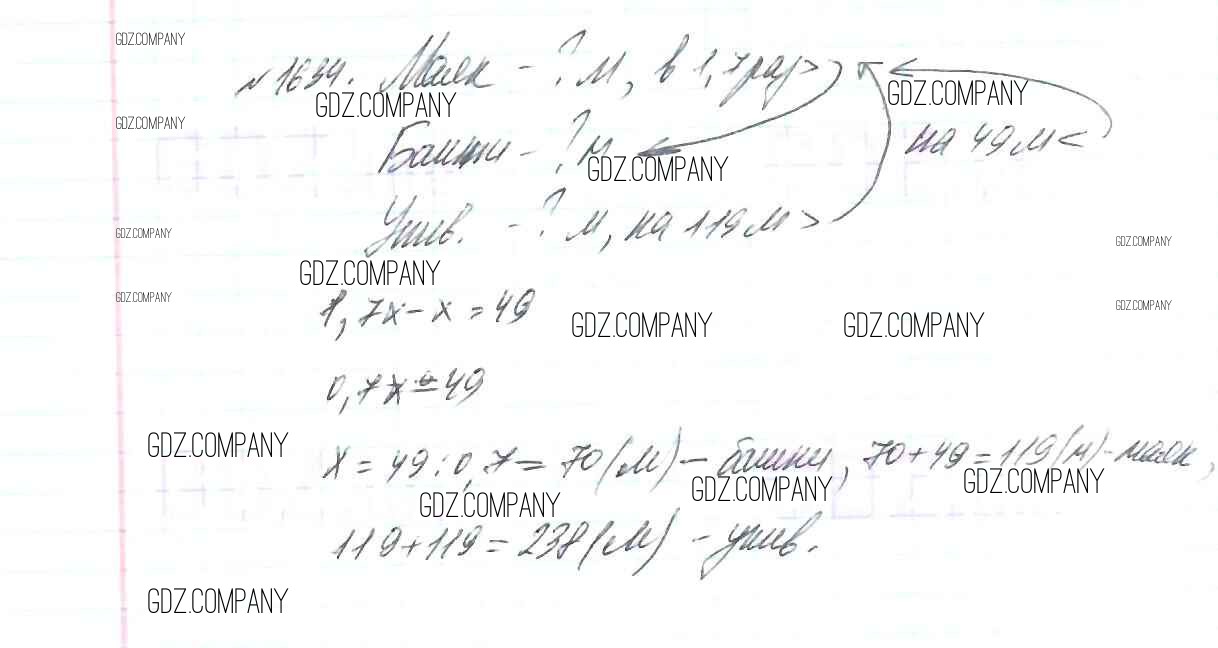 GDZ.COMPANY
№1634. Маяк - ? м, в 1,7 раз >
GDZ.COMPANY GDZ.COMPANY
GDZ.COMPANY
Башни - ? м на 49 м <
GDZ.COMPANY
Унив. - ? м, на 119 м >
GDZ.COMPANY GDZ.COMPANY
GDZ.COMPANY
GDZ.COMPANY GDZ.COMPANY
1,7x - x = 49
GDZ.COMPANY GDZ.COMPANY
0,7x = 49
GDZ.COMPANY
x = 49 : 0,7 = 70 (м) - башни, 70 + 49 = 119 (м) - маяк,
GDZ.COMPANY GDZ.COMPANY GDZ.COMPANY
119 + 119 = 238 (м) - унив.
GDZ.COMPANY